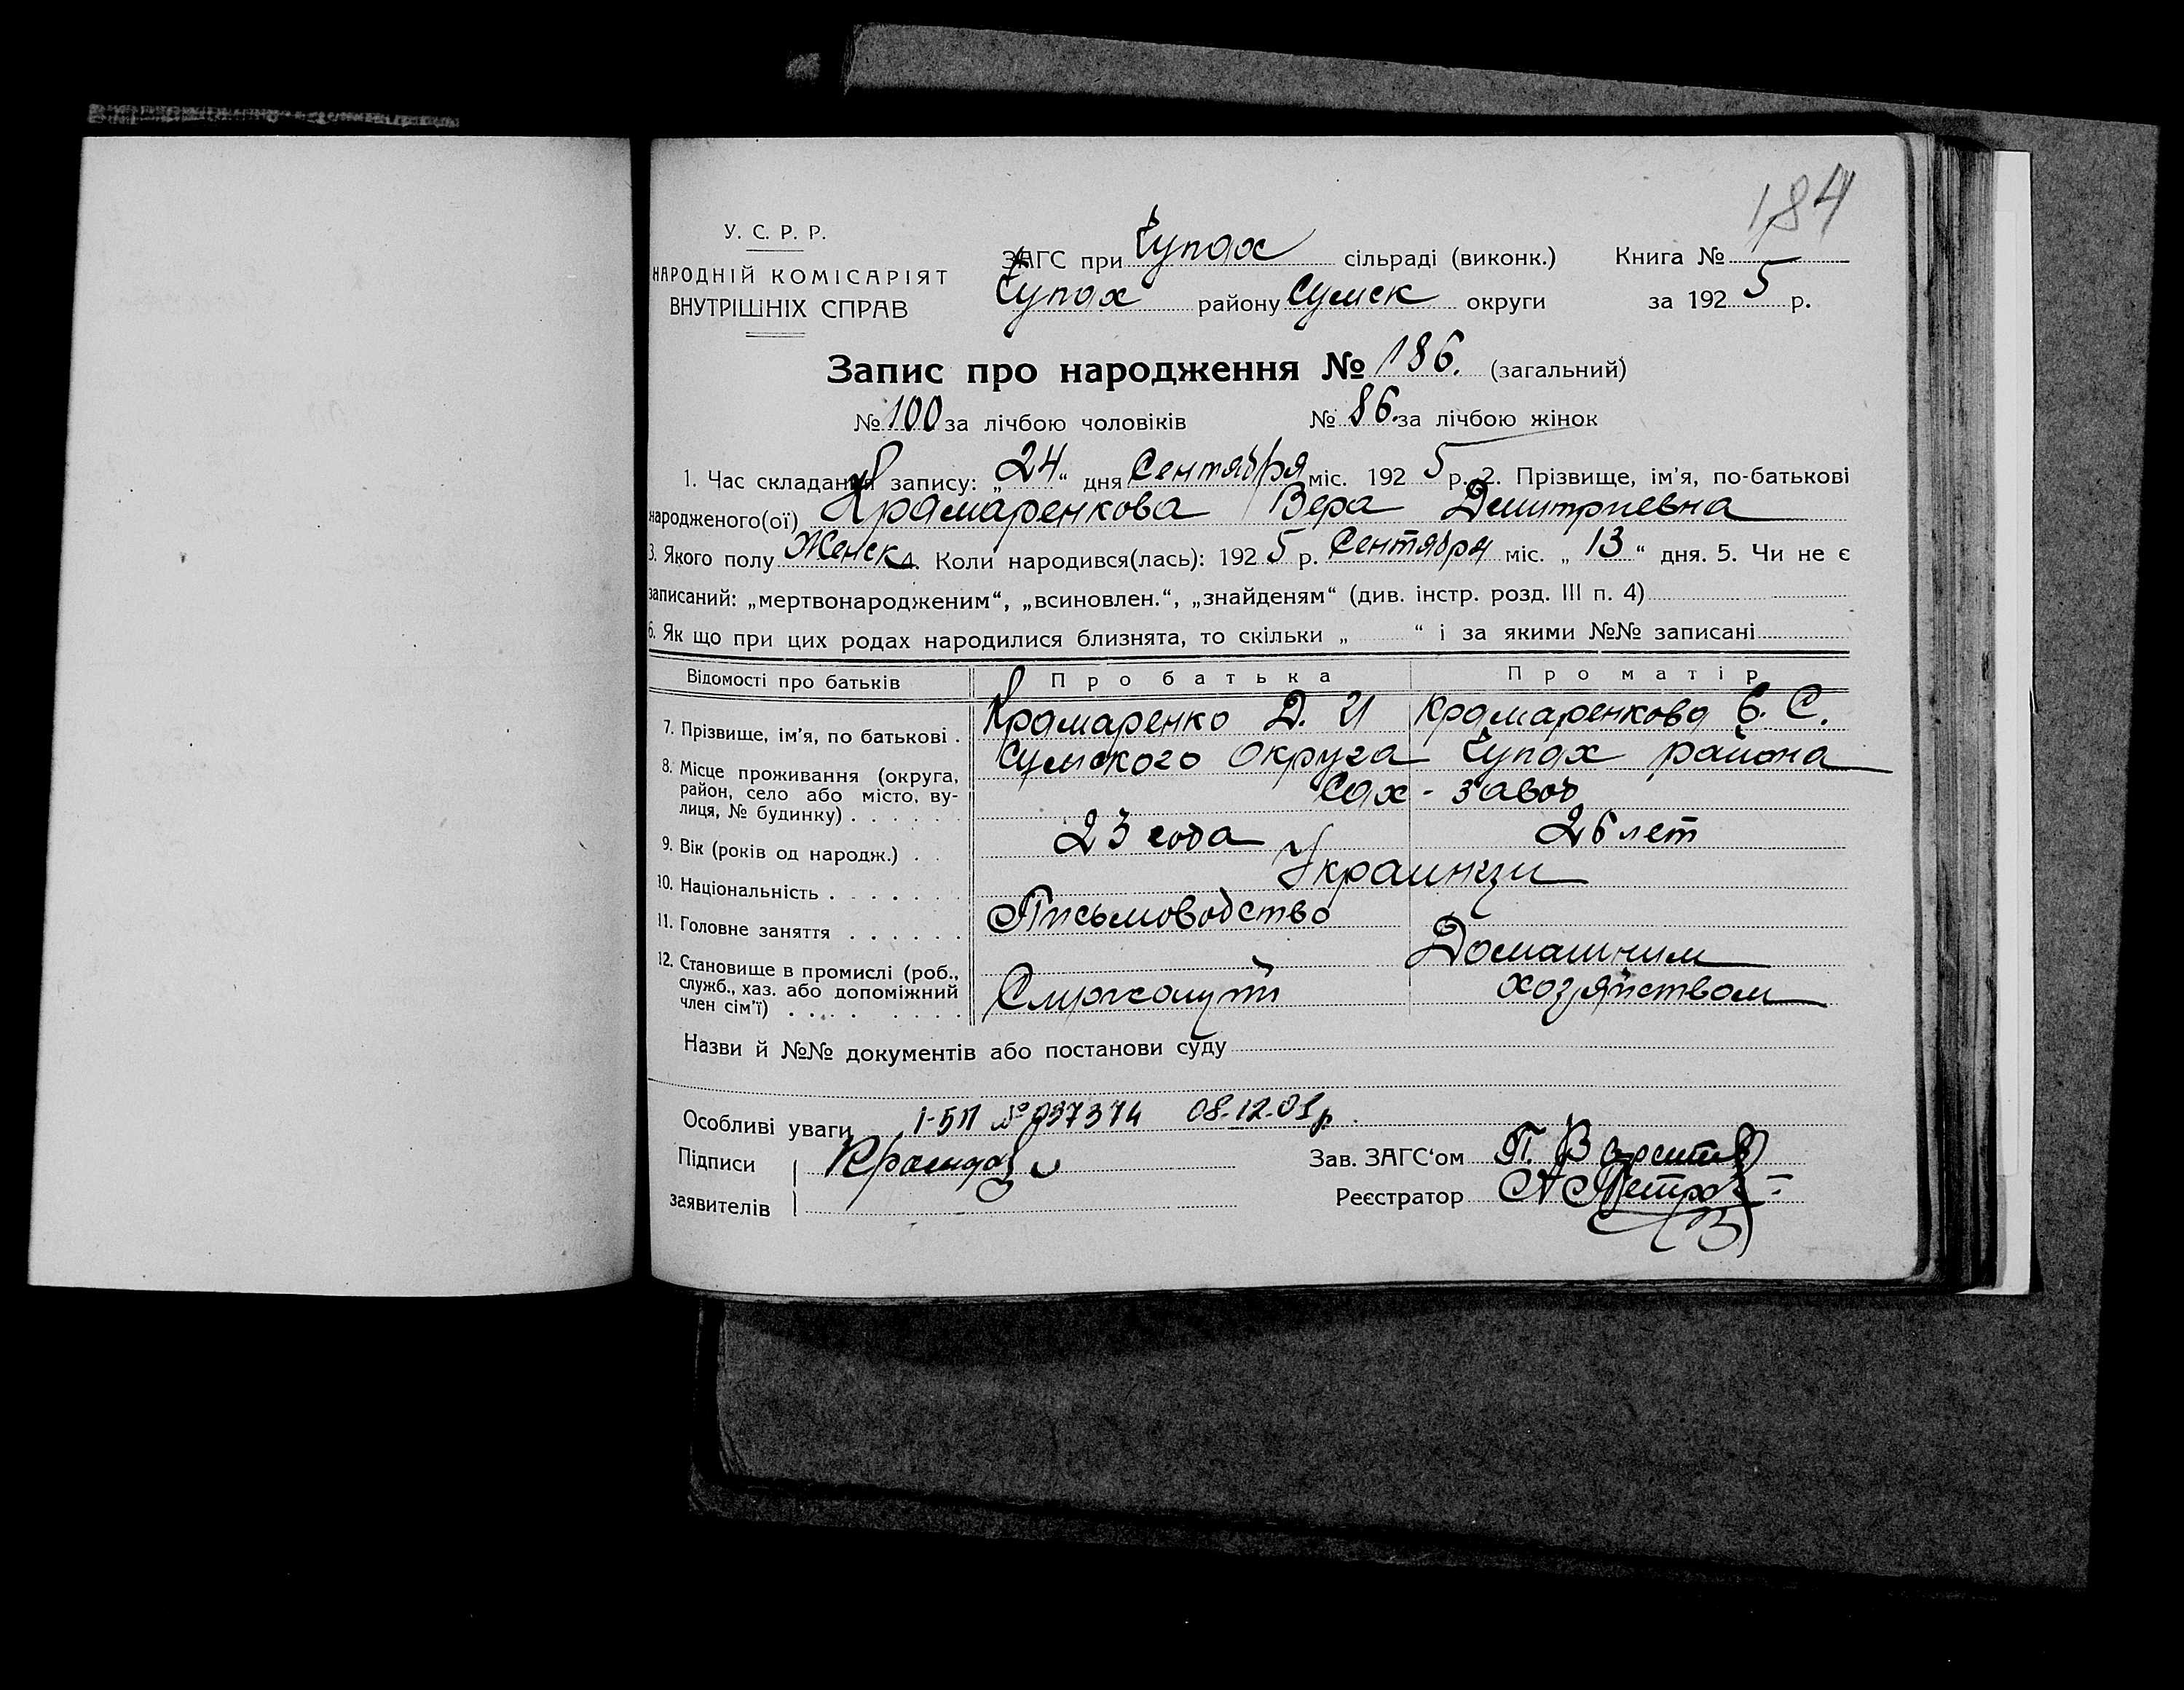 184
У. С. Р. Р.
НАРОДНІЙ КОМІСАРІЯТ
ВНУТРІШНІХ СПРАВ
ЗАГС при Чупах сільраді (виконк.) Книга №
Чупах району Сумск округи за 1925 р.
Запис про народження № 186. (загальний)
№ 100 за лічбою чоловіків № 86. за лічбою жінок
1. Час складання запису: „24“ дня Сентября міс. 1925 р. 2. Прізвище, ім'я, по-батькові
народженого(ої) Крамаренкова Вера Дмитриевна
3. Якого полу Женск 4. Коли народився(лась): 1925 р. Сентября міс. „13“ дня. 5. Чи не є
записаний: „мертвонародженим“, „всиновлен.“, „знайденям“ (див. інстр. розд. III п. 4)
6. Як що при цих родах народилися близнята, то скільки „ “ і за якими №№ записані
Відомості про батьків Про батька Про матір
7. Прізвище, ім'я, по батькові . Крамаренко Д. И Крамаренкова Е. С.
8. Місце проживання (округа, район, село або місто, вулиця, № будинку) . . . . . . Сумского Округа Чупах района
Сах-завод
9. Вік (років од народж.) . . 23 года 26 лет
10. Національність . . . . . . . Украинци
11. Головне заняття . . . . . . Письмоводство
12. Становище в промислі (роб., служб., хаз. або допоміжний член сім'ї) . . . . . . . . Служащий Домашним
хозяйством
Назви й №№ документів або постанови суду
Особливі уваги І-БП № 037374 08.12.01р.
Підписи
Зав. ЗАГС'ом П.
заявителів
Реєстратор А Петров